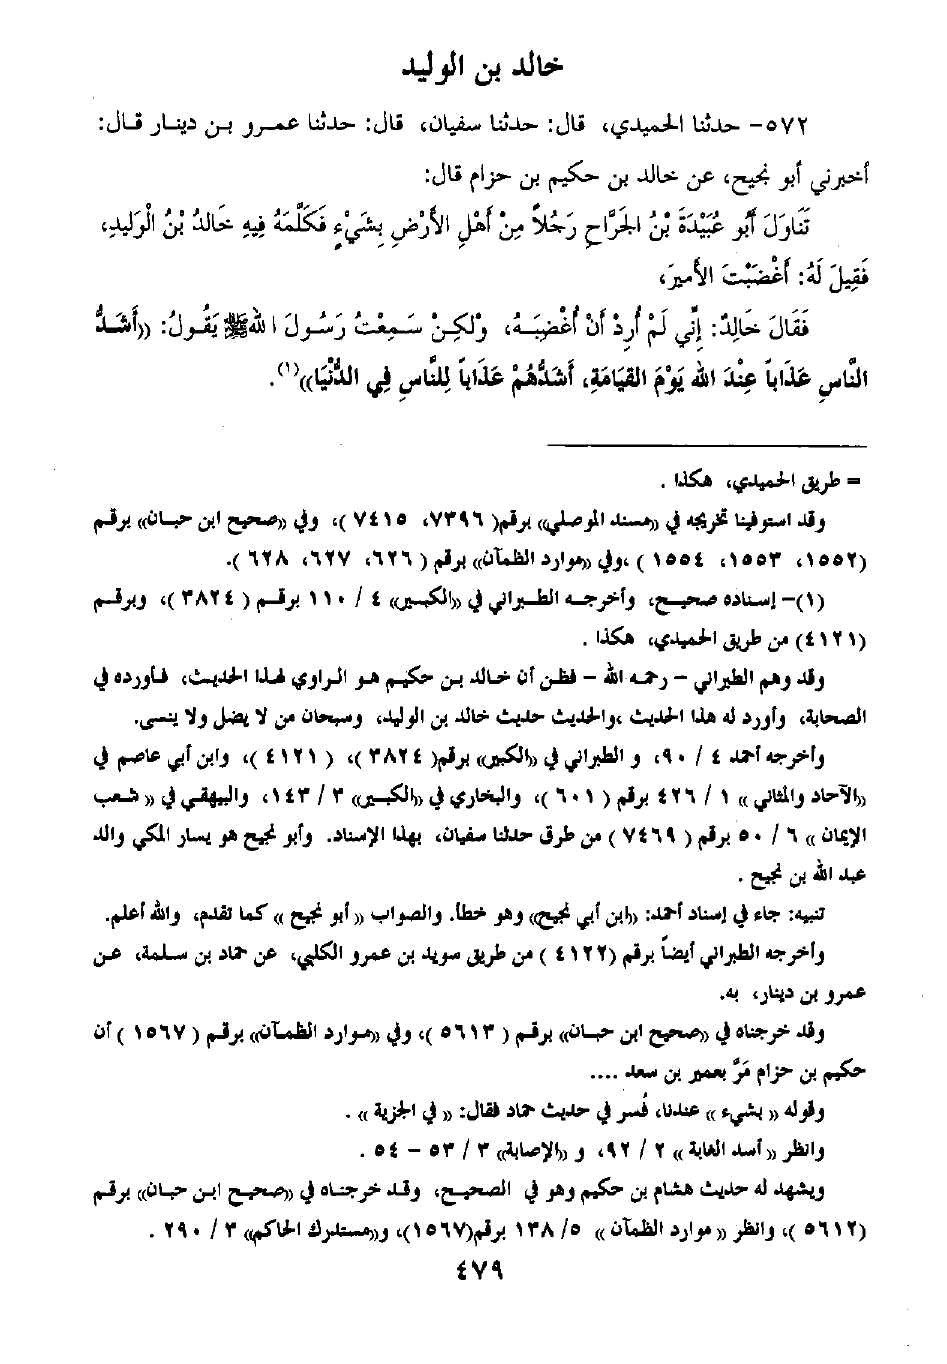 خالد بن الوليد
٥٧٢- حدثنا الحميدي، قال: حدثنا سفيان، قال: حدثنا عمرو بن دينار قال:
أخبرني أبو نجيح، عن خالد بن حكيم بن حزام قال:
تَنَاوَلَ أَبُو عُبَيْدَةَ بْنُ الجَرَّاحِ رَجُلاً مِنْ أَهْلِ الأَرْضِ بِشَيْءٍ فَكَلَّمَهُ فِيهِ خَالدُ بْنُ الْوَلِيدِ،
فَقِيلَ لَهُ: أَغْضَبْتَ الأَمِيرَ،
فَقَالَ خَالِدٌ: إِنِّي لَمْ أُرِدْ أَنْ أُغْضِبَهُ، وَلَكِنْ سَمِعْتُ رَسُولَ اللهِ ﷺ يَقُولُ: ((أَشَدُّ
النَّاسِ عَذَاباً عِنْدَ اللهِ يَوْمَ القِيَامَةِ، أَشَدُّهُمْ عَذَاباً لِلنَّاسِ فِي الدُّنْيَا))(١).
= طريق الحميدي، هكذا .
وقد استوفينا تخريجه في ((مسند الموصلي)) برقم( ٧٣٩٦، ٧٤١٥ )، وفي ((صحيح ابن حبان)) برقم
(١٥٥٢، ١٥٥٣، ١٥٥٤ ) ،وفي ((موارد الظمآن)) برقم ( ٦٢٦، ٦٢٧، ٦٢٨ ).
(١)- إسناده صحيح، وأخرجه الطبراني في ((الكبير)) ٤ / ١١٠ برقم ( ٣٨٢٤ )، وبرقم
(٤١٢١) من طريق الحميدي، هكذا .
وقد وهم الطبراني - رحمه الله - فظن أن خالد بن حكيم هو الراوي لهذا الحديث، فأورده في
الصحابة، وأورد له هذا الحديث ،والحديث حديث خالد بن الوليد، وسبحان من لا يضل ولا ينسى.
وأخرجه أحمد ٤ / ٩٠، و الطبراني في ((الكبير)) برقم( ٣٨٢٤ )، ( ٤١٢١ )، وابن أبي عاصم في
((الآحاد والمثاني )) ١ / ٤٢٦ برقم ( ٦٠١ )، والبخاري في ((الكبير)) ٣ / ١٤٣، والبيهقي في (( شعب
الإيمان )) ٦ / ٥٠ برقم ( ٧٤٦٩ ) من طرق حدثنا سفيان، بهذا الإسناد. وأبو نجيح هو يسار المكي والد
عبد الله بن نجيح .
تنبيه: جاء في إسناد أحمد: ((ابن أبي نجيح)) وهو خطأ. والصواب (( أبو نجيح )) كما تقدم، والله أعلم.
وأخرجه الطبراني أيضاً برقم (٤١٢٢ ) من طريق سويد بن عمرو الكلبي، عن حماد بن سلمة، عن
عمرو بن دينار، به.
وقد خرجناه في ((صحيح ابن حبان)) برقم ( ٥٦١٣ )، وفي ((موارد الظمآن)) برقم ( ١٥٦٧ ) أن
حكيم بن حزام مَرَّ بعمير بن سعد ....
وقوله (( بشيء )) عندنا، فُسر في حديث حماد فقال: (( في الجزية )) .
وانظر (( أسد الغابة )) ٢ / ٩٢، و ((الإصابة)) ٣ / ٥٣ - ٥٤ .
ويشهد له حديث هشام بن حكيم وهو في الصحيح، وقد خرجناه في ((صحيح ابن حبان)) برقم
(٥٦١٢ )، وانظر (( موارد الظمآن )) ٥/ ١٣٨ برقم(١٥٦٧)، و((مستدرك الحاكم)) ٣ / ٢٩٠ .
٤٧٩